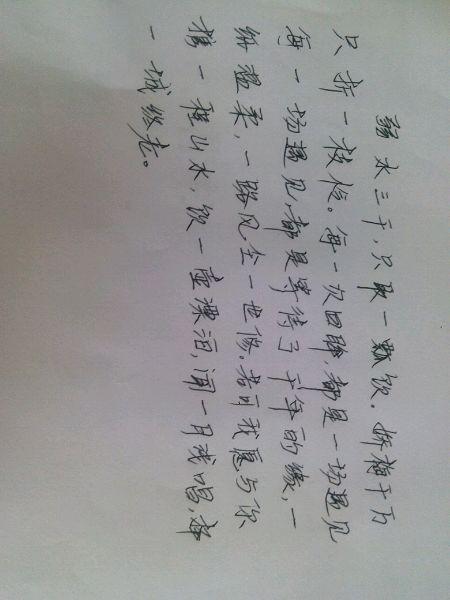 弱水三千,只取一瓢饮。娇梅千万
只折一枝怜。每一次回眸,都是一场遇见
每一场遇见,都是等待了千年的缘,一
纸温柔,一路风尘一世伤。若可我愿与你
携一程山水,饮一壶漂泊,闻一月唱,
一城终老。